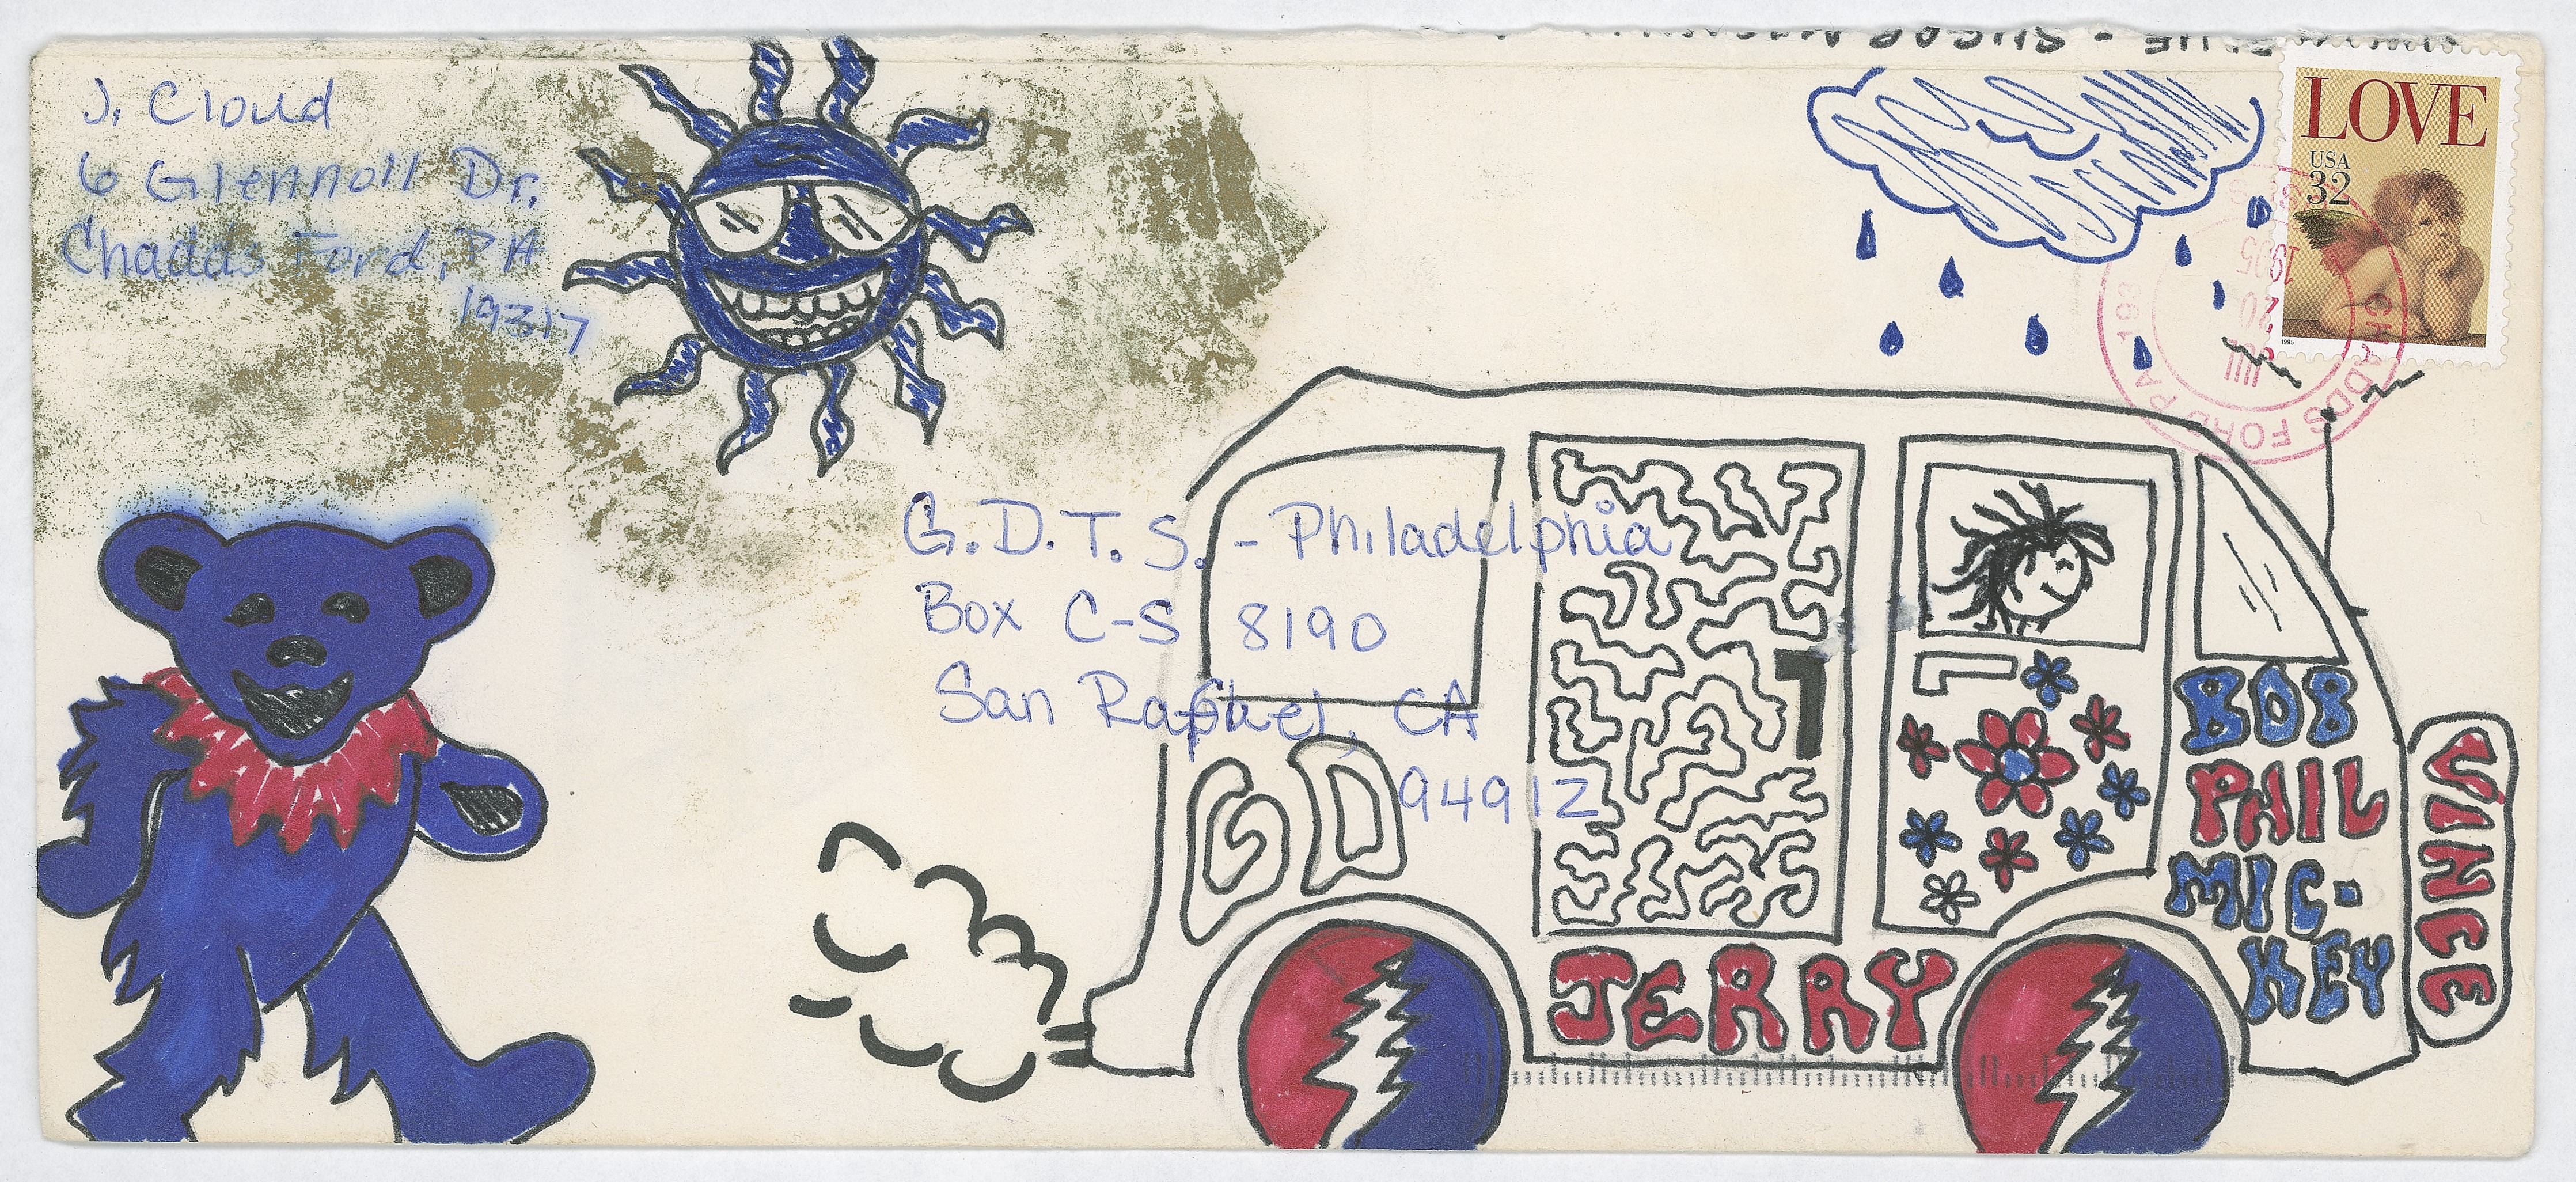 J. Cloud
6 Glennoll Dr.
Chadds Ford, PA
19317
LOVE
USA
32
1995
CHADDS FORD PA
JUL
20
1995
G.D.T.S. - Philadelphia
Box C-S 8190
San Raphael, CA
94912
GD
JERRY
BOB
PHIL
MIC-
KEY
VINCE